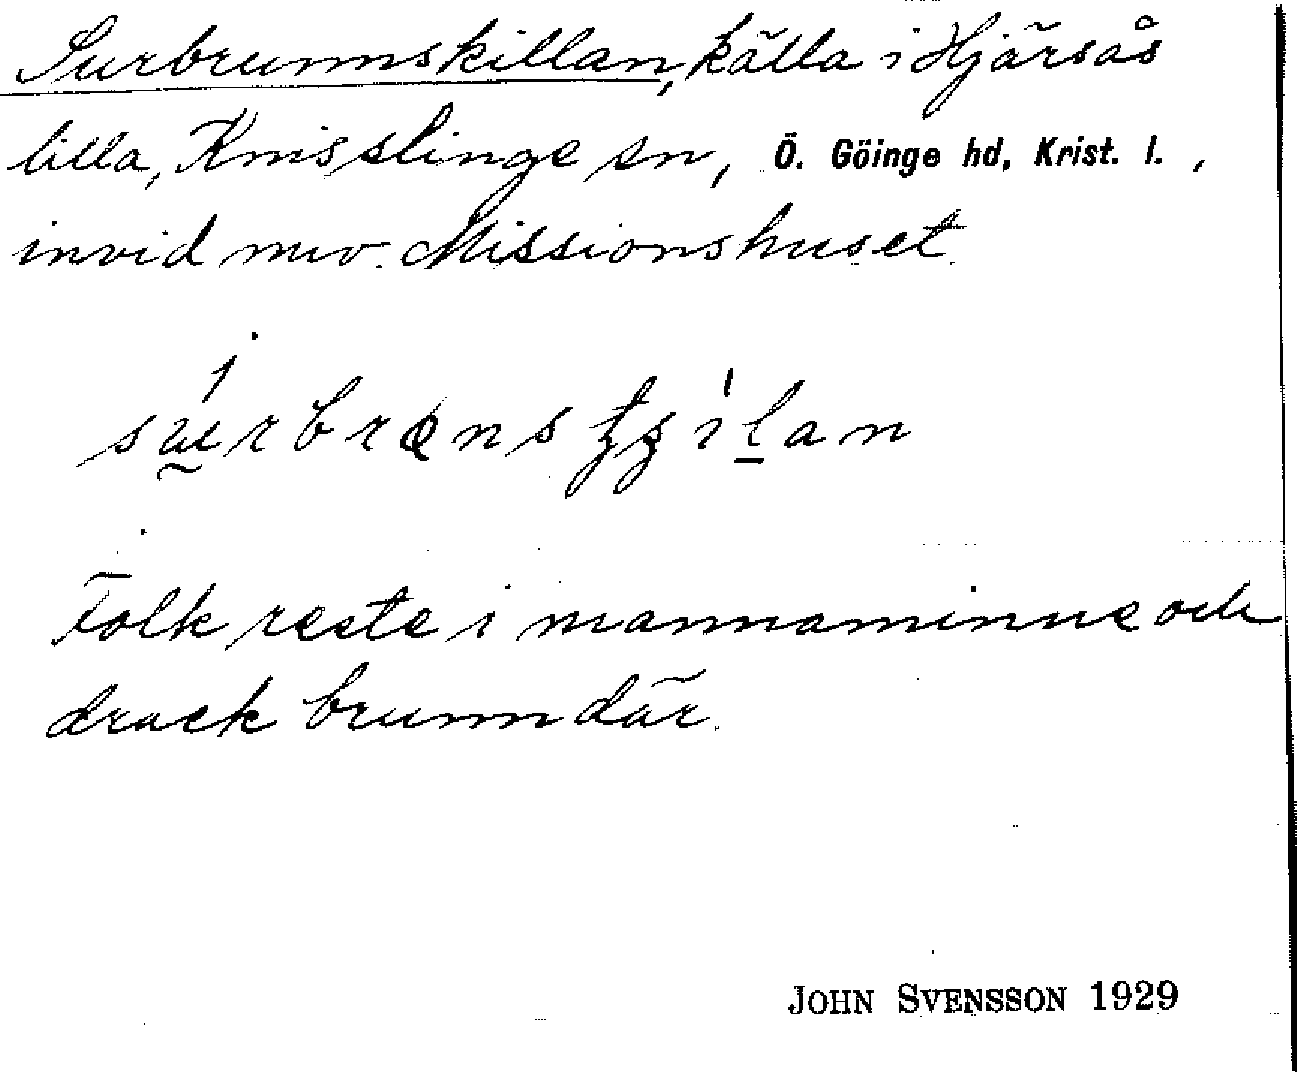 Surbrunnskillan, källa i Hjärsås
lilla, Knisslinge sn, Ö. Göinge hd, Krist. l.,
invid nuv. Missionshuset.
Folk reste i mannaminne och
drack brunn där.
JOHN SVENSSON 1929